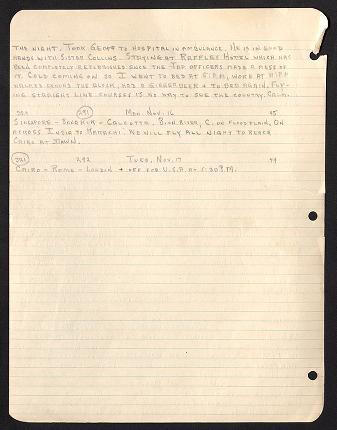 THE NIGHT. TOOK GEOFF TO HOSPITAL IN AMBULANCE. HE IS IN GOOD
HANDS WITH SISTER COLLINS. STAYING AT RAFFLES HOTEL WHICH HAS
BEEN COMPLETELY REFURBISHED SINCE THE JAP OFFICERS MADE A MESS OF
IT. COLD COMING ON SO I WENT TO BED AT 6 P.M., WOKE AT
WALKED AROUND THE BLOCK, HAD A GINGER BEER & TO BED AGAIN. FLY-
ING STRAIGHT LINE COURSES IS NO WAY TO SEE THE COUNTRY. CALM.
320 291 MON. NOV. 16 45
SINGAPORE - BANGKOK - CALCUTTA. ON FLOOD PLAIN. ON
ACROSS INDIA TO KARACHI. WE WILL FLY ALL NIGHT TO REACH
CAIRO AT DAWN.
321 292 TUES. NOV. 17 44
CAIRO - ROME - LONDON & OFF FOR U.S.A. AT 7:30 P.M.